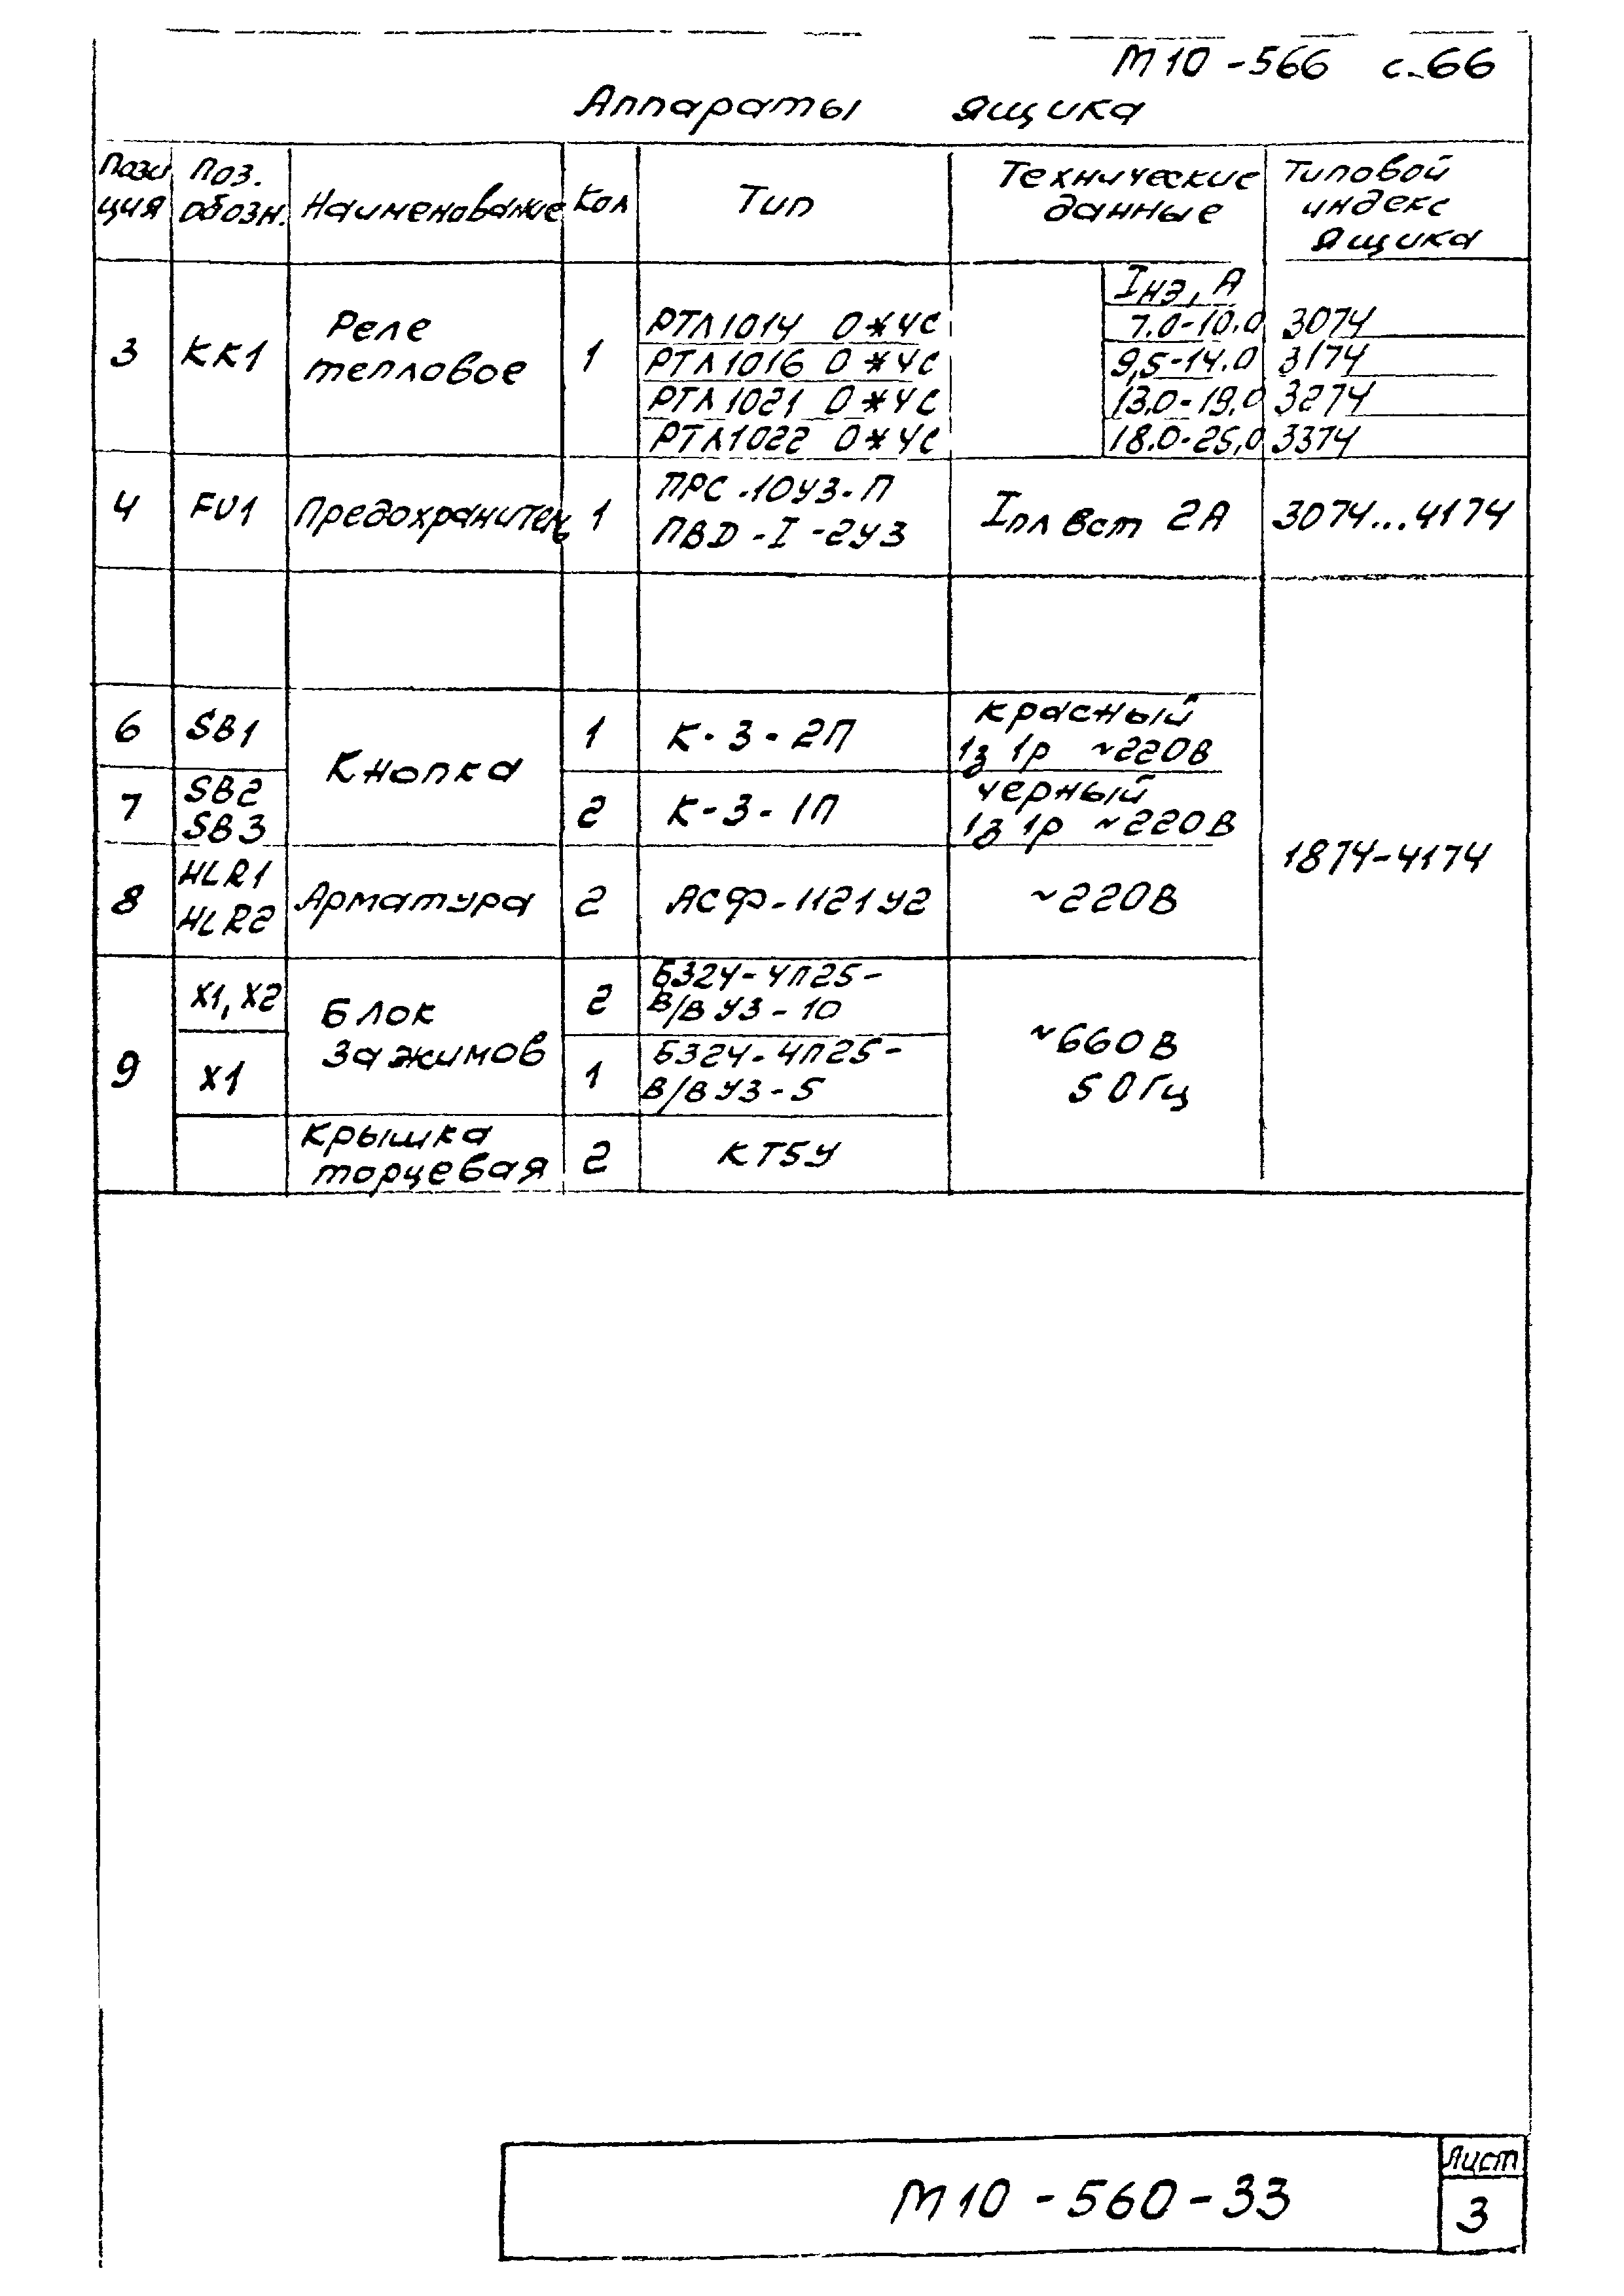 М10-566 с.66
Аппараты ящика
Пози
ция
Поз.
обозн.
Наименование
Кол
Тип
Технические
данные
Типовой
индекс
Ящика
3
КК1
Реле
тепловое
1
Iнэ, А
РТЛ1014 0*4С 7.0-10.0 3074
РТЛ1016 0*4С 9,5-14.0 3174
РТЛ1021 0*4С 13.0-19.0 3274
РТЛ1022 0*4С 18.0-25,0 3374
4
FU1
Предохранитель
1
ПРС-10У3-П
ПВD-I-2У3
Iпл вст 2А
3074...4174
6
SB1
Кнопка
1
К-3-2П
красный
1з 1р ~220В
7
SB2
SB3
2
К-3-1П
черный
1з 1р ~220В
1874-4174
8
HLR1
HLR2
Арматура
2
АСФ-1121У2
~220В
9
X1, X2
Блок
зажимов
2
БЗ24-4П25-
В/В У3-10
X1
1
БЗ24-4П25-
В/В У3-5
~660В
50Гц
Крышка
торцевая
2
КТ5У
М10-560-33
Лист
3